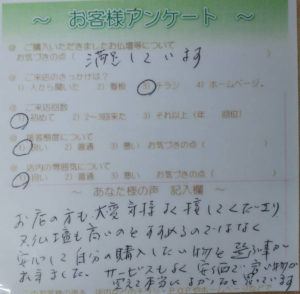 ～ お客様アンケート ～
① ご購入いただきましたお仏壇等について
お気づきの点( 満足しています )
② ご来店のきっかけは?
1) 人から聞いた 2) 看板 3) チラシ 4) ホームページ
③ ご来店回数
1) 初めて 2) 2～3回来た 3) それ以上(年 回位)
④ 接客態度について
1) 良い 2) 普通 3) 悪い お気づきの点( )
⑤ 店内の雰囲気について
1) 良い 2) 普通 3) 悪い お気づきの点( )
～ あなた様の声 記入欄 ～
お店の方も大変気持よく接してくださり
又仏壇も高いのをすすめるのではなく
安心して自分の購入したい物を選ぶ事が
出来ました。サービスもよく安価で良い物が
買えて本当によかったと思っています